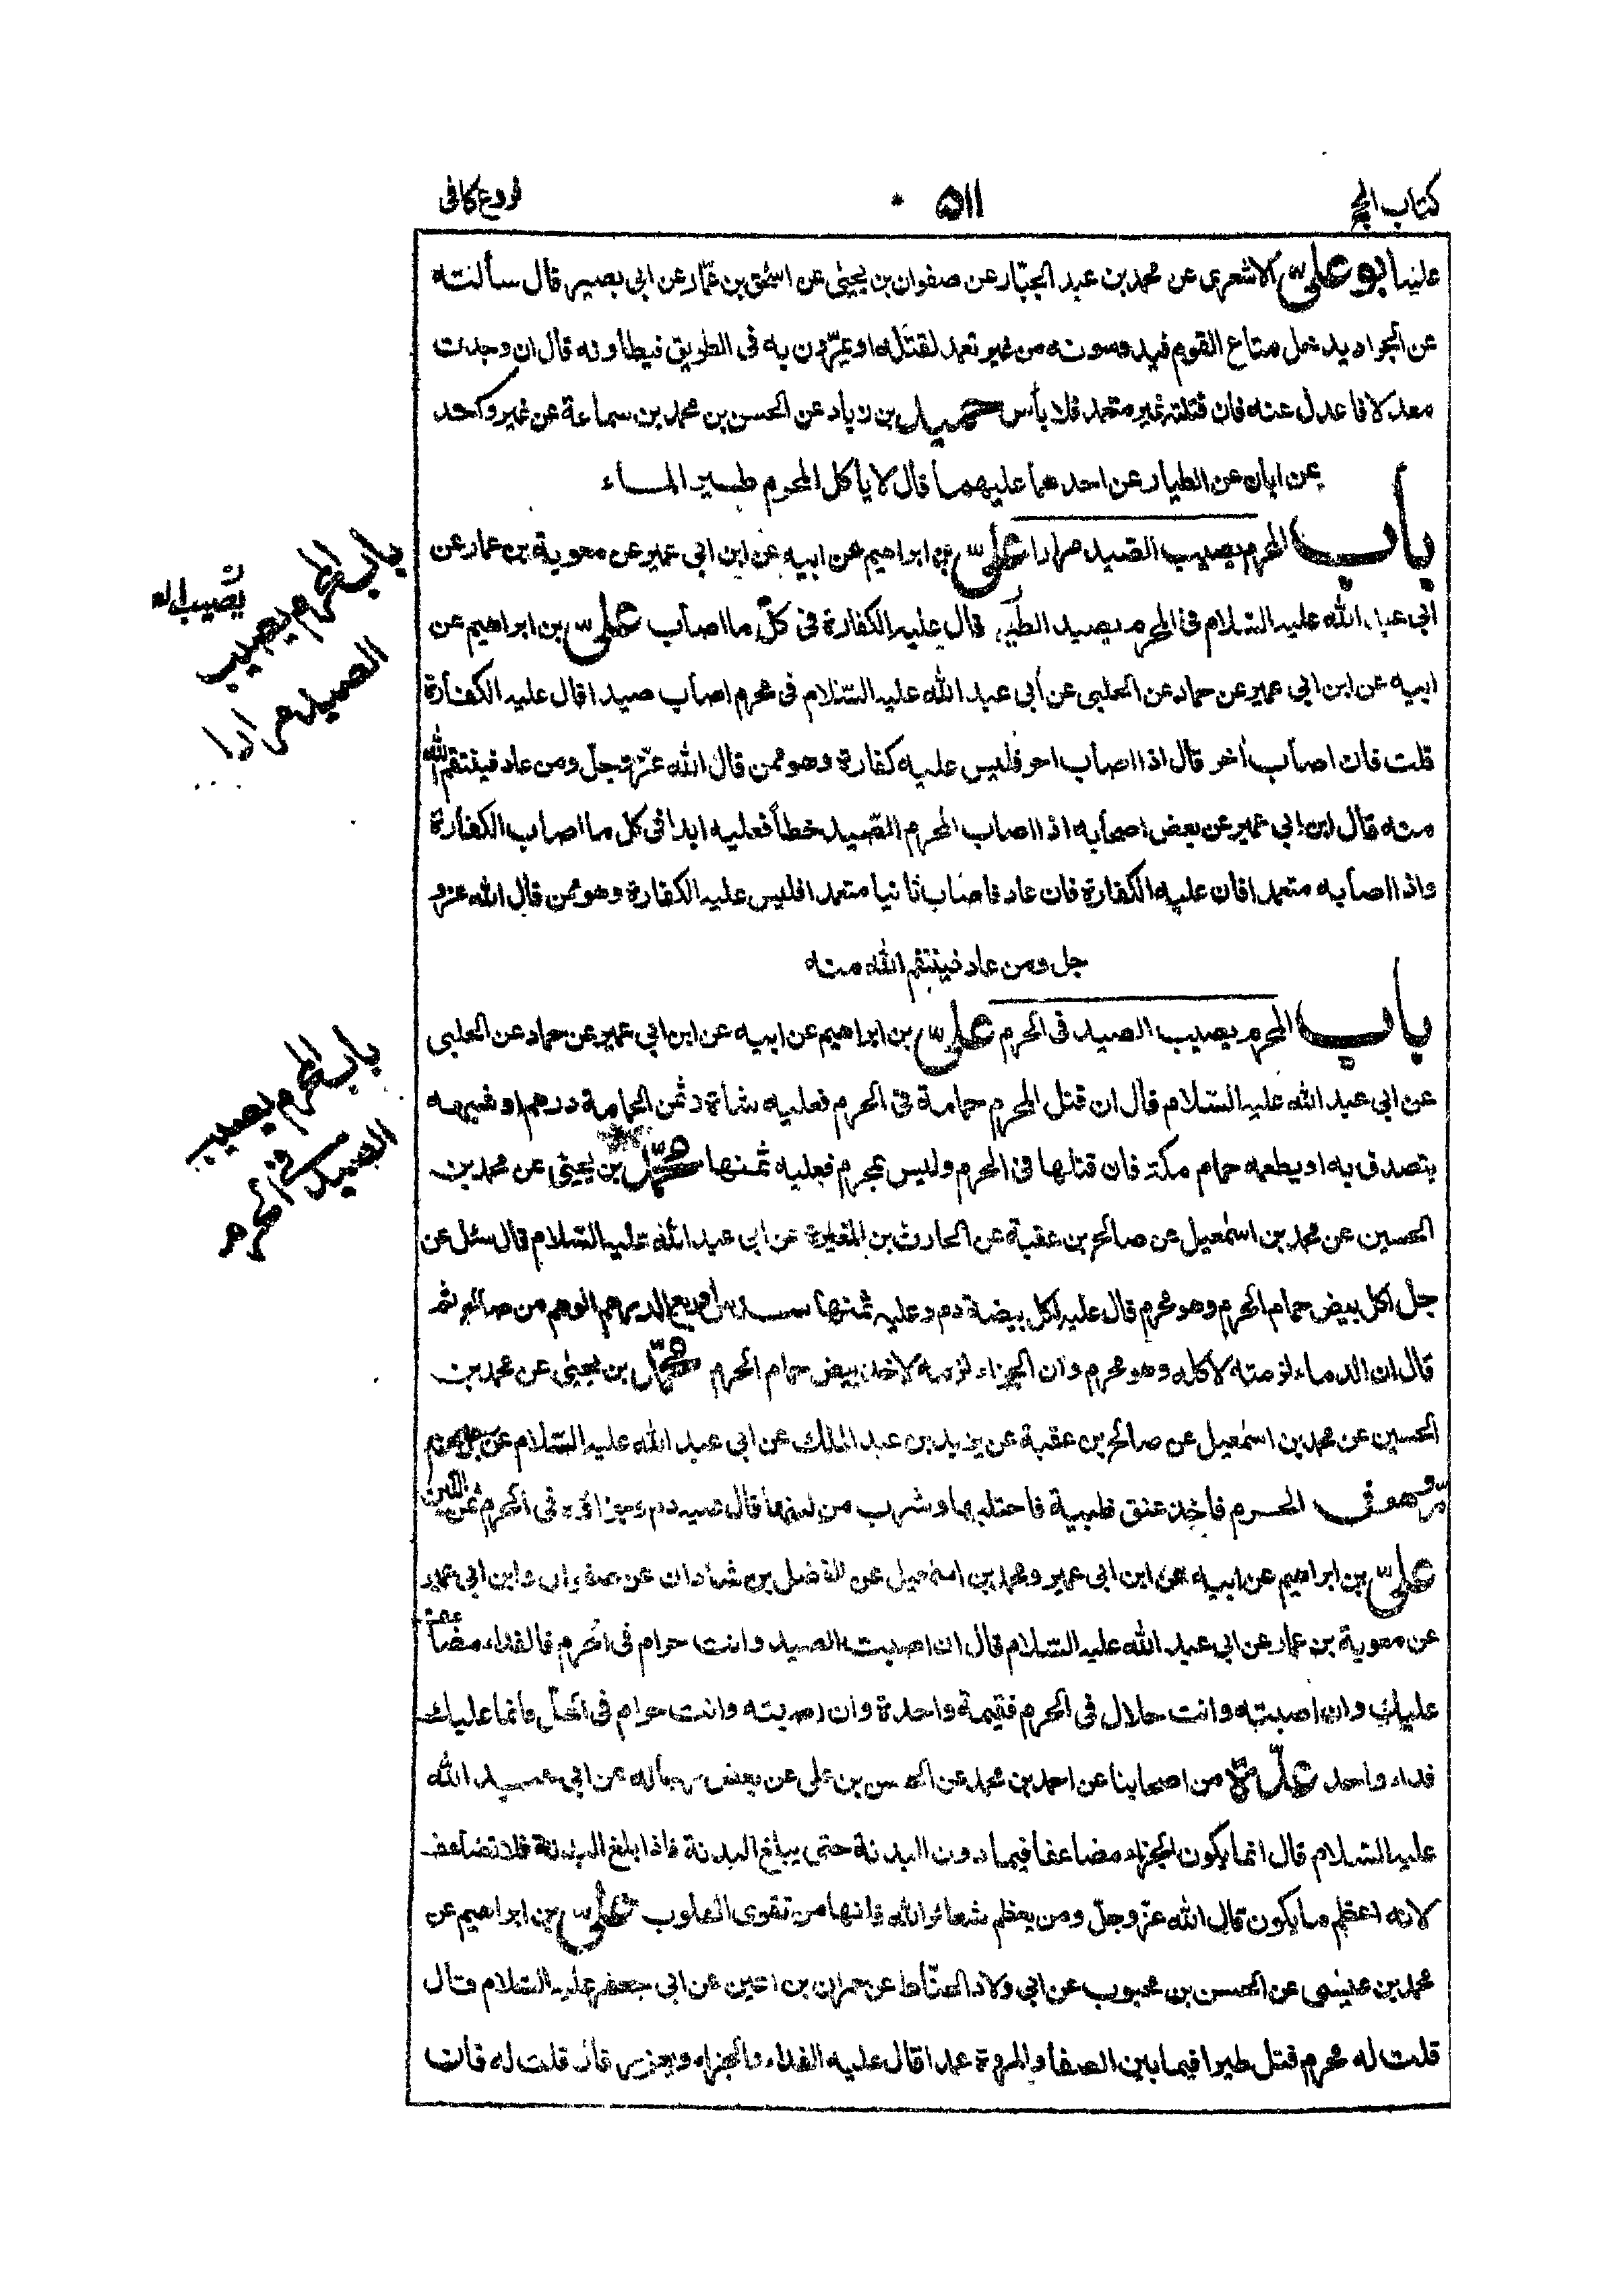 كتاب الحج
٥١١
فروع كافى
علينا ابو على الاشعرى عن محمد بن عبد الجبّار عن صفوان بن يحيٰى عن اسحٰق بن عمّار عن ابى بصير قال سألته
عن الجراد يدخل متاع القوم فيدوسونه من غير تعمد لقتله او يمرّون به فى الطريق فيطأونه قال ان وجدت
معدلا فاعدل عنه فان قتلته غير متعمد فلا بأس حميد بن زياد عن الحسن بن محمد بن سماعة عن غير واحد
عن ابان عن الطيار عن احدهما عليهما قال لا يأكل المحرم طير الماء
باب المحرم يصيب الصيد مرارا على بن ابراهيم عن ابيه عن ابن ابى عمير عن معوية بن عمار عن
ابى عبد الله عليه السّلام فى المحرم يصيد الطير قال عليه الكفارة فى كلّ ما اصاب على بن ابراهيم عن
ابيه عن ابن ابى عمير عن حماد عن الحلبى عن أبى عبد الله عليه السّلام فى محرم اصاب صيدا قال عليه الكفارة
قلت فان اصاب أخر قال اذا اصاب اخر فليس عليه كفارة وهو ممن قال الله عزّ وجلّ ومن عاد فينتقم الله
منه قال ابن ابى عمير عن بعض اصحابه اذا اصاب المحرم الصيد خطأ فعليه ابدا فى كل ما اصاب الكفارة
واذا اصابه متعمدا فان عليه الكفارة فان عاد فاصاب ثانيا متعمدا فليس عليه الكفارة وهو ممن قال الله عزو
جل ومن عاد فينتقم الله منه
باب المحرم يصيب الصيد فى الحرم على بن ابراهيم عن ابيه عن ابن ابى عمير عن حماد عن الحلبى
عن ابى عبد الله عليه السّلام قال ان قتل المحرم حمامة فى الحرم فعليه شاة وثمن الحمامة درهم او شبهه
يتصدق به او يطعمه حمام مكة فان قتلها فى الحرم وليس بمحرم فعليه ثمنها محمّد بن يحيٰى عن محمد بن
الحسين عن محمد بن اسمٰعيل عن صالح بن عقبة عن الحارث بن المغيرة عن ابى عبد الله عليه السّلام قال سئل عن
رجل اكل بيض حمام الحرم وهو محرم قال عليه لكل بيضة دم وعليه ثمنها سدس او ربع الدرهم الوهم من صالح ثم
قال ان الدماء لزمته لاكله وهو محرم وان الجزاء لزمه لاخذه بيض حمام الحرم محمّد بن يحيٰى عن محمد بن
الحسين عن محمد بن اسمٰعيل عن صالح بن عقبة عن يزيد بن عبد الملك عن ابى عبد الله عليه السّلام عن رجل محرم
مرّ وهو فى الحرم فأخذ عنق ظبية فاحتلبها وشرب من لبنها قال عليه دم وجزاؤه فى الحرم ثمن اللبن
على بن ابراهيم عن ابيه عن ابن ابى عمير ومحمد بن اسمٰعيل عن الفضل بن شاذان عن صفوان وابن ابى عمير
عن معوية بن عمار عن ابى عبد الله عليه السّلام قال ان اصبت الصيد وانت حرام فى الحرم فالفداء مضاعف
عليك وان اصبته وانت حلال فى الحرم فقيمة واحدة وان اصبته وانت حرام فى الحلّ فانما عليك
فداء واحد عدّة من اصحابنا عن احمد بن محمد عن الحسن بن على عن بعض رجاله عن ابى عبد الله
عليه السّلام قال انما يكون الجزاء مضاعفا فيما دون البدنة حتى يبلغ البدنة فاذا بلغ البدنة فلا تضاعف
لانه اعظم ما يكون قال الله عزّ وجلّ ومن يعظم شعائر الله فانها من تقوى القلوب على بن ابراهيم عن
محمد بن عيسى عن الحسن بن محبوب عن ابى ولاد الحنّاط عن حمران بن اعين عن ابى جعفر عليه السّلام قال
قلت له محرم قتل طيرا فيما بين الصفا والمروة عمدا قال عليه الفداء والجزاء ويعزر قال قلت له فان
باب المحرم يصيب
الصيد مرارا
باب المحرم يصيب
الصيد فى الحرم